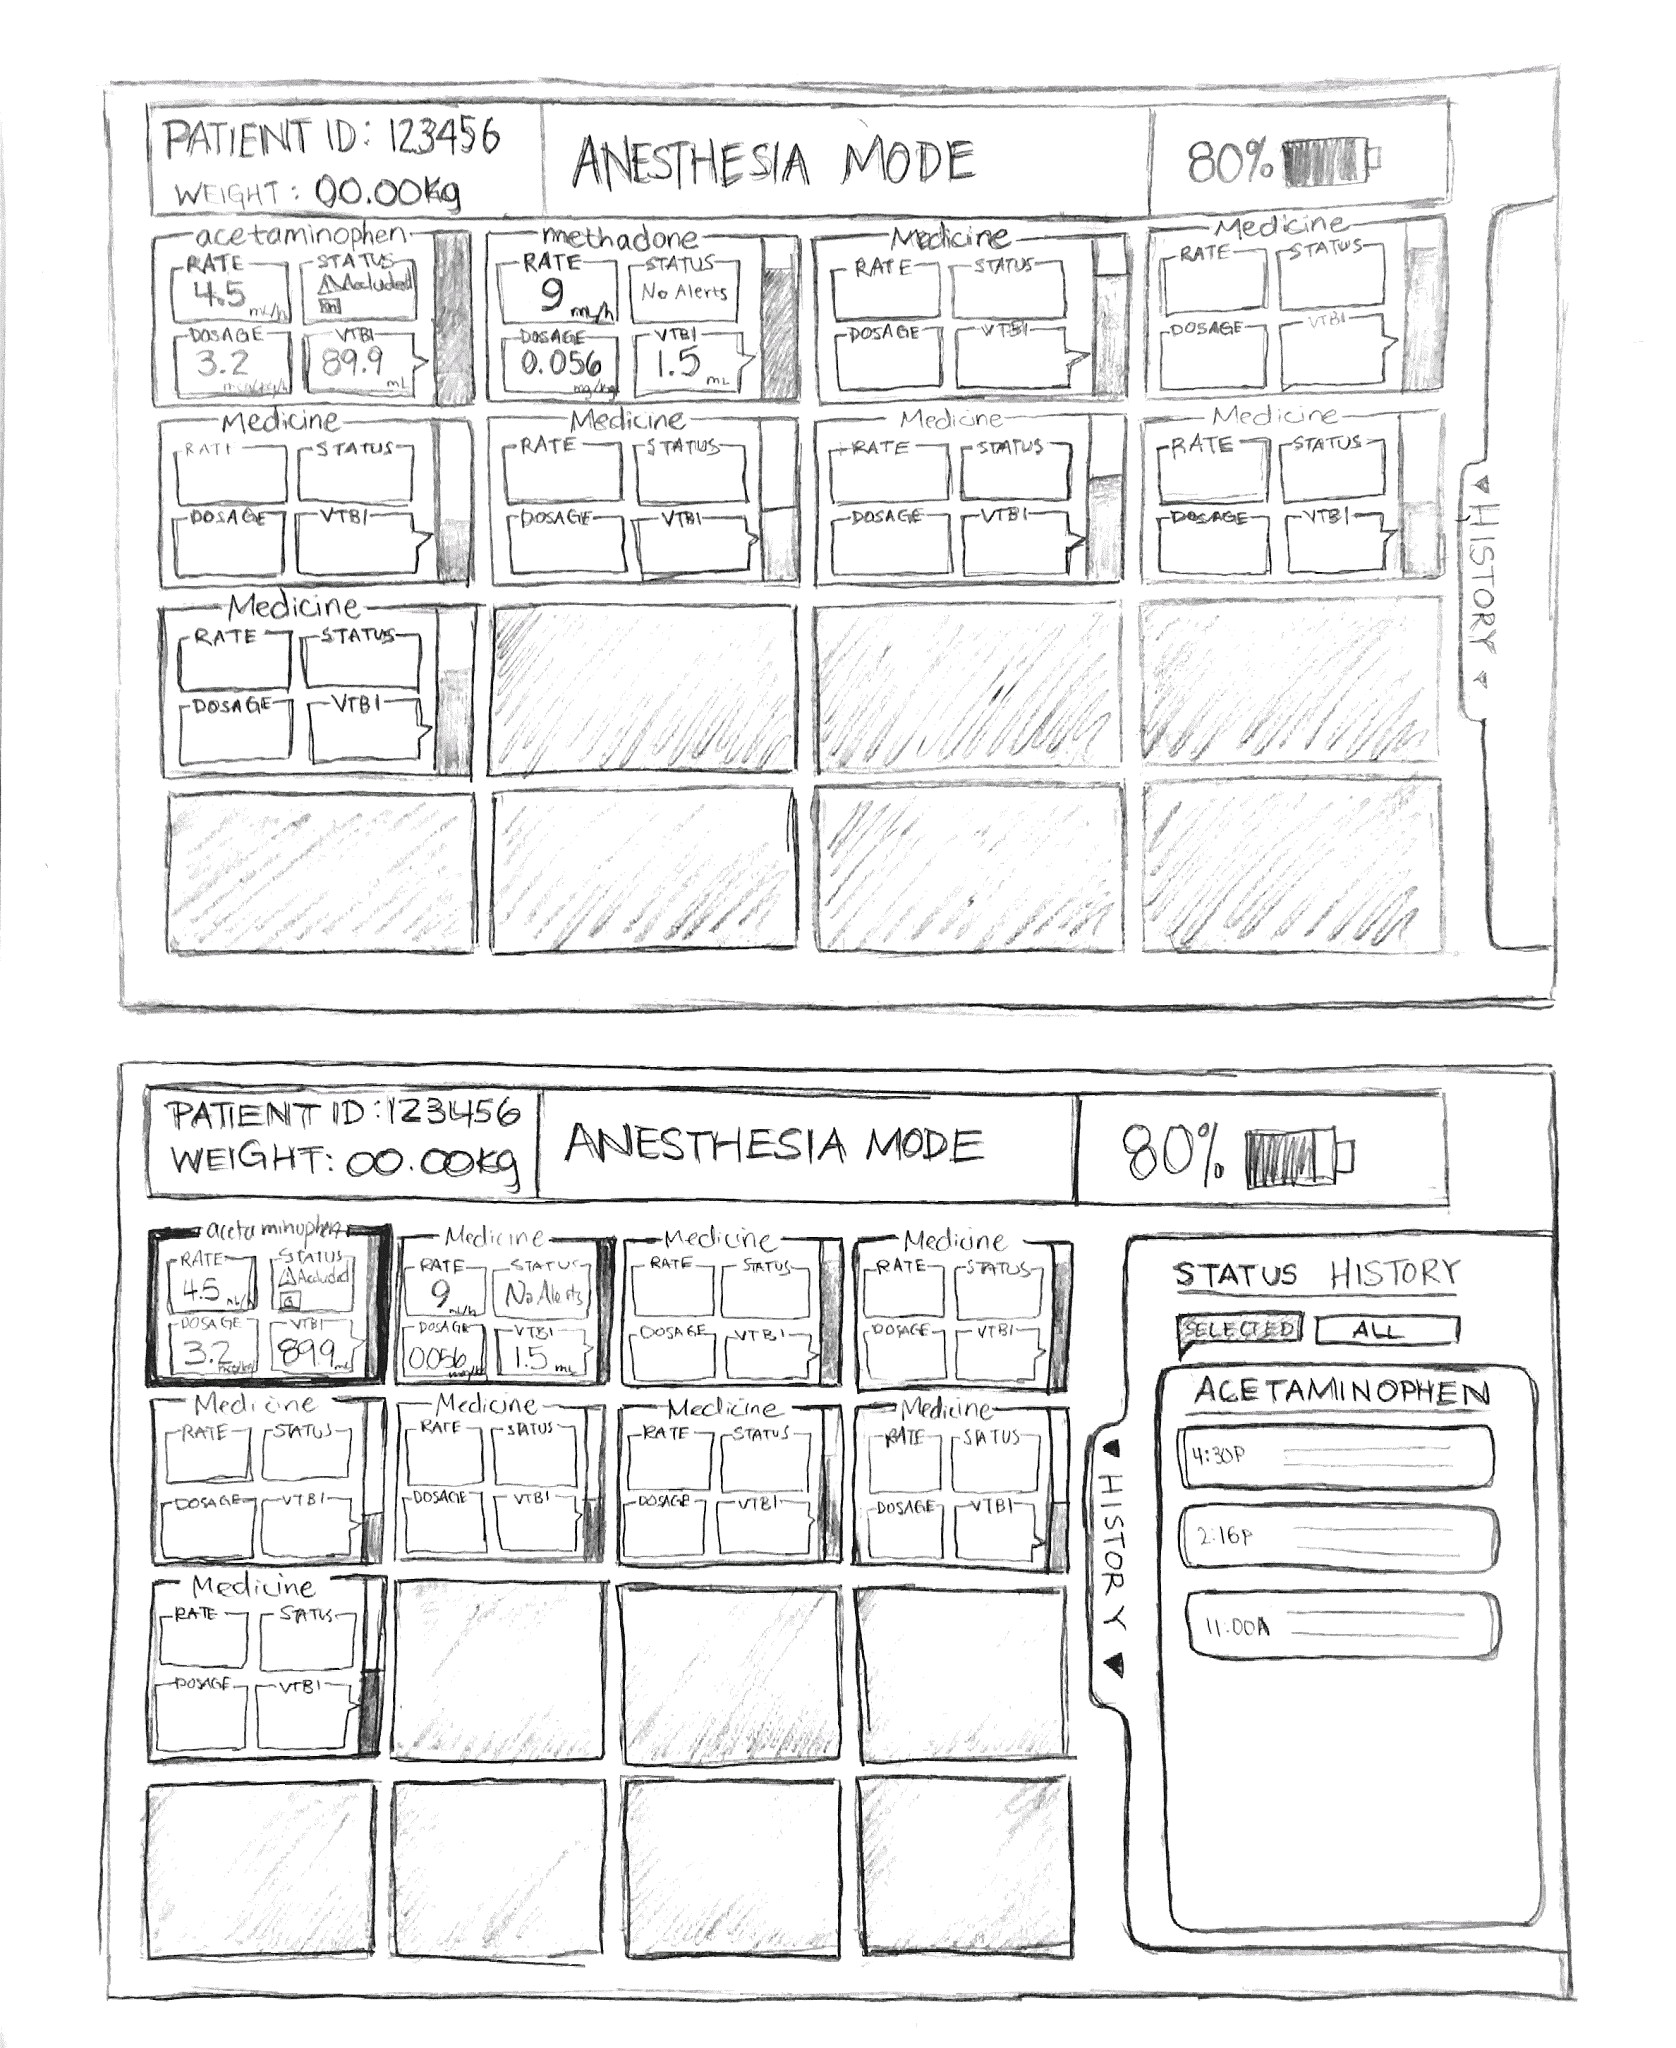 PATIENT ID: 123456
WEIGHT: 00.00Kg
ANESTHESIA MODE
80%
acetaminophen
RATE
4.5
mL/h
STATUS
DOSAGE
3.2
VTBI
89.9
mL
methadone
RATE
9
mL/h
STATUS
No Alerts
DOSAGE
0.056
mg/kg
VTBI
1.5
mL
Medicine
RATE
STATUS
DOSAGE
VTBI
Medicine
RATE
STATUS
DOSAGE
VTBI
Medicine
RATE
STATUS
DOSAGE
VTBI
Medicine
RATE
STATUS
DOSAGE
VTBI
Medicine
RATE
STATUS
DOSAGE
VTBI
Medicine
RATE
STATUS
DOSAGE
VTBI
Medicine
RATE
STATUS
DOSAGE
VTBI
HISTORY
PATIENT ID: 123456
WEIGHT: 00.00kg
ANESTHESIA MODE
80%
acetaminophen
RATE
4.5
mL/h
STATUS
DOSAGE
3.2
VTBI
89.9
mL
Medicine
RATE
9
mL/h
STATUS
No Alerts
DOSAGE
0056
VTBI
1.5
mL
Medicine
RATE
STATUS
DOSAGE
VTBI
Medicine
RATE
STATUS
DOSAGE
VTBI
Medicine
RATE
STATUS
DOSAGE
VTBI
Medicine
RATE
STATUS
DOSAGE
VTBI
Medicine
RATE
STATUS
DOSAGE
VTBI
Medicine
RATE
STATUS
DOSAGE
VTBI
Medicine
RATE
STATUS
DOSAGE
VTBI
HISTORY
STATUS HISTORY
SELECTED
ALL
ACETAMINOPHEN
4:30P
2:16P
11:00A